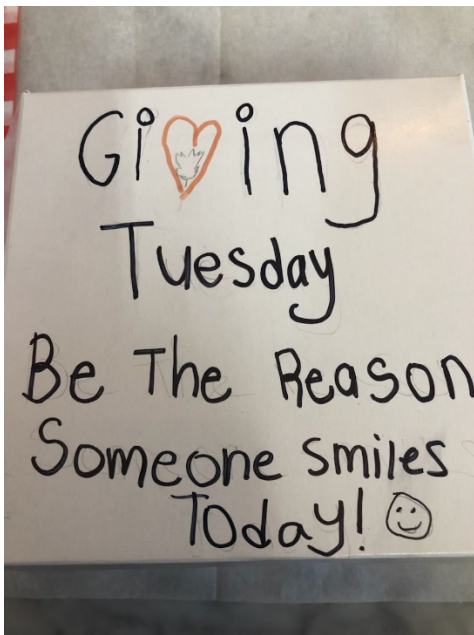 Giving
Tuesday
Be The Reason
Someone Smiles
Today!